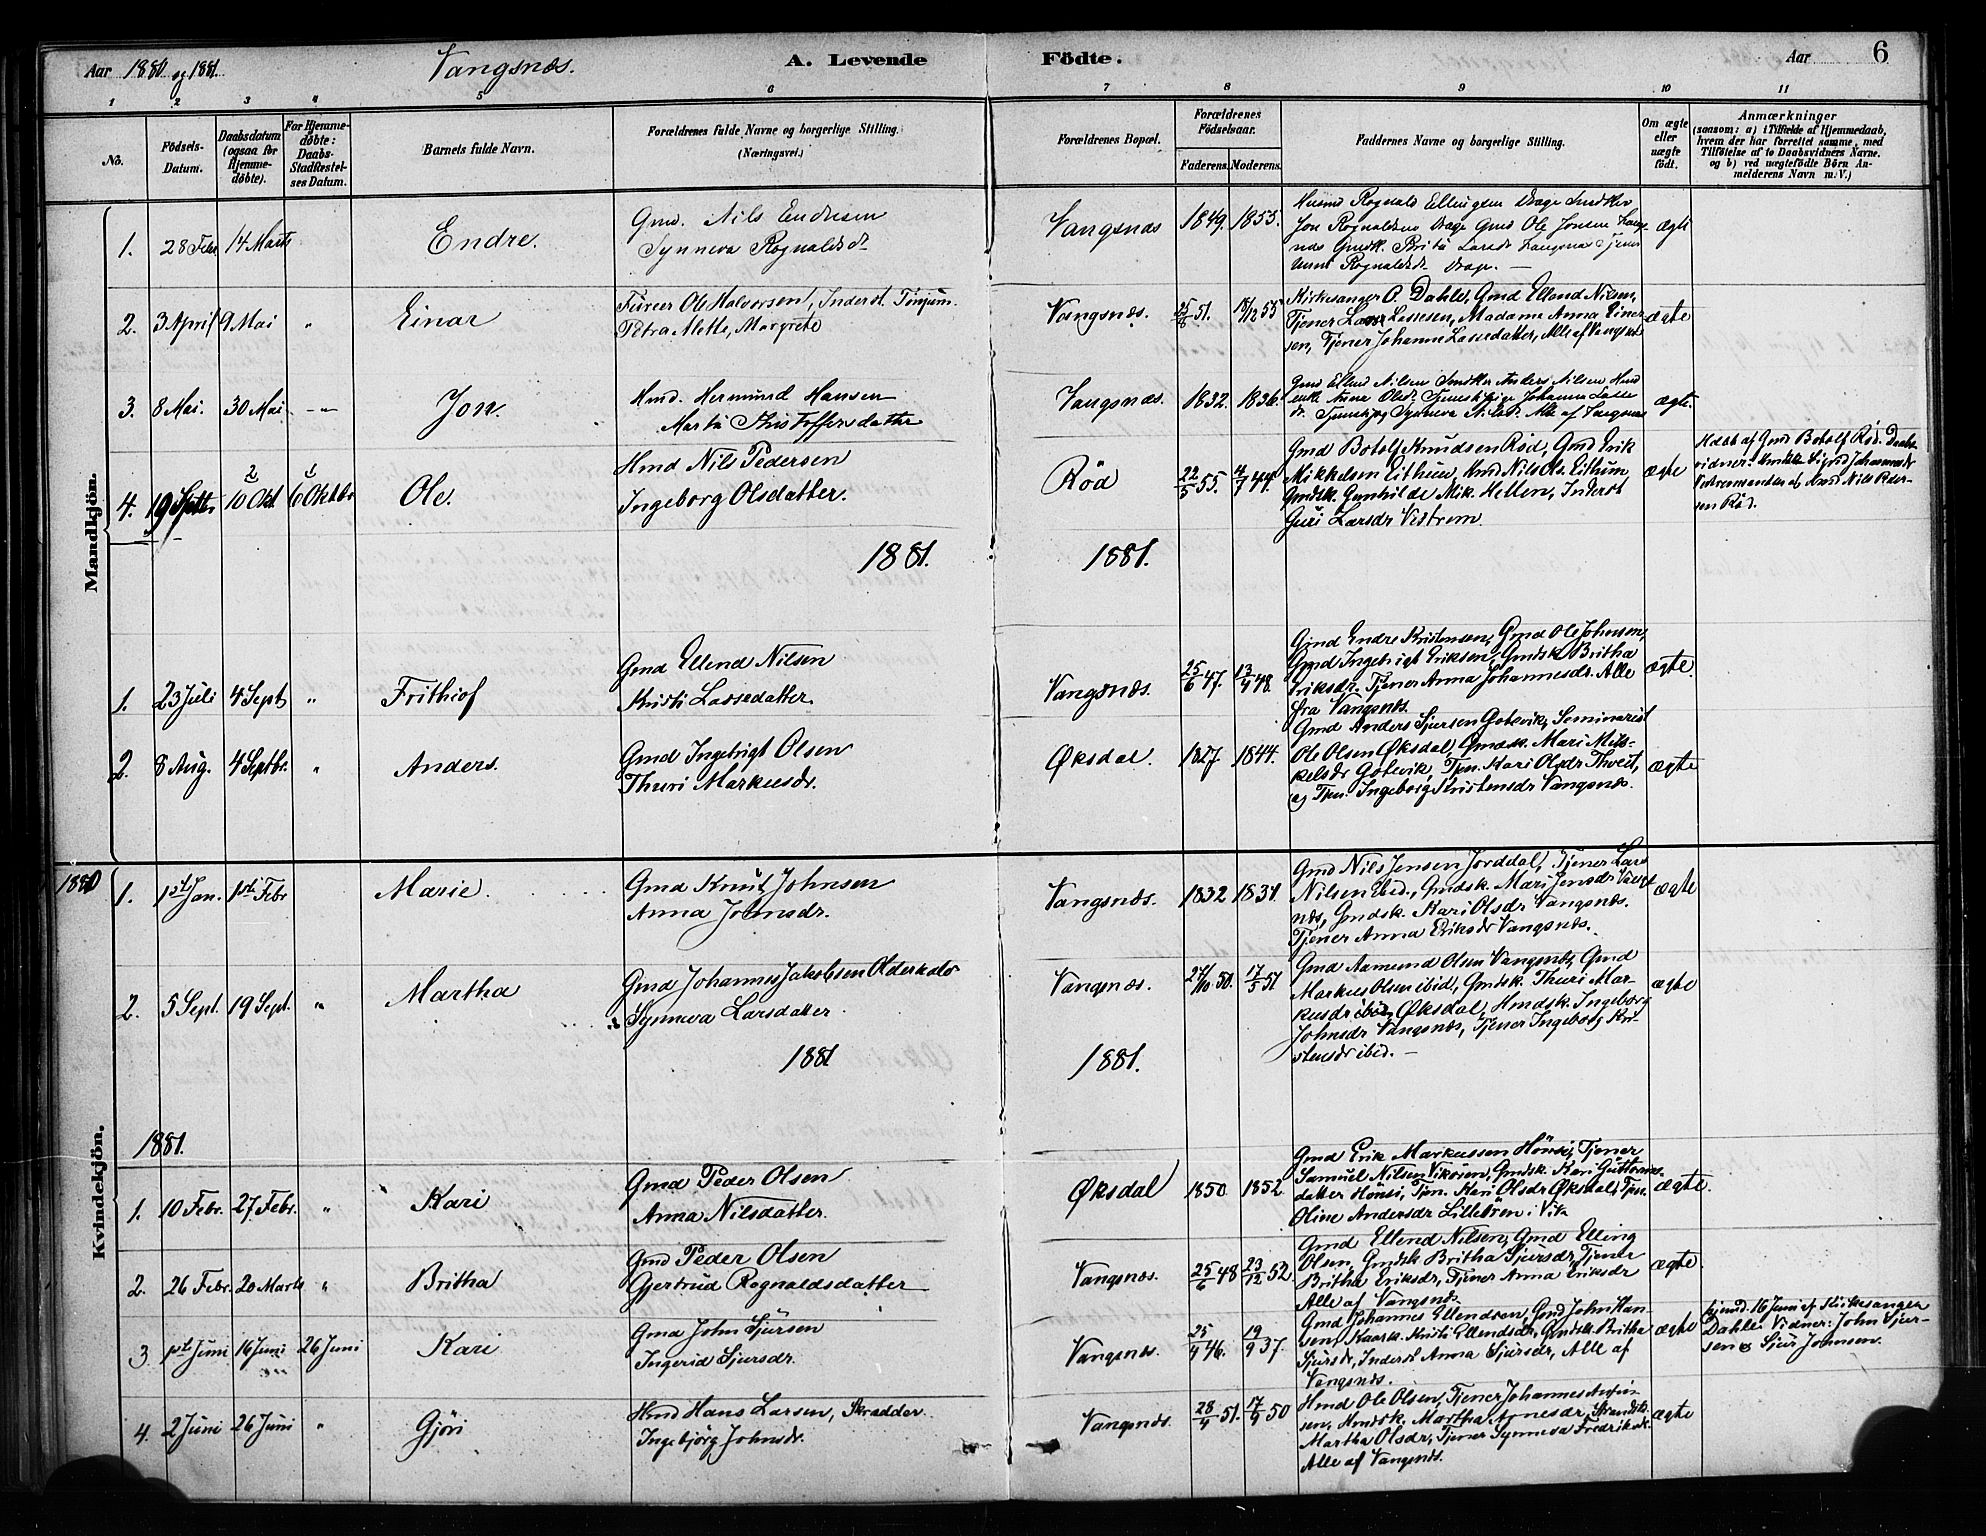 Aar 1880 og 1881. Vangsnæs. A. Levende Födte. Aar 6
1 2 3 4 5 6 7 8 9 10 11
No.
Födsels-Datum.
Daabsdatum (ogsaa for Hjemme-döbte).
For Hjemme-döbte: Daabs-Stadfæstel-ses Datum.
Barnets fulde Navn.
Forældrenes fulde Navne og borgerlige Stilling. (Næringsvei.)
Forældrenes Bopæl.
Forældrenes Födselsaar.
Faderens. Moderens.
Faddernes Navne og borgerlige Stilling.
Om ægte eller uægte født.
Anmærkninger
(saasom: a) i Tilfælde af Hjemmedaab, hvem der har forrettet samme, med Tilföielse af to Daabsvidners Navne. og b) ved uegtefödte Börn Anmelderens Navn m. V.)
Mandkjön.
1. 28 Febr 14 Marts Endre.
Gmd. Nils Endresen
Synneva Rognaldsdr
Vangsnæs 1849. 1855.
Husmd Rognald Ellingsen Drage
Jon Rognaldsen Drage Gmd Ole Jonsen Vangs-
næs Gmdsk. Brita Larsdr Vangsnæs Tjener
Rognaldsdr Drage. —
ægte
2. 3 April 9 Mai " Einar
Ole Halvorsen, Inderst. Tinjum.
Petra Mette, Margrete
Vangsnæs. 51. 18/12 55
Kirkesanger O. Dahle, Gmd Ellend Nilsen,
Tjener Lassesen, Madame Anna Einer-
sen, Tjener Johanne Lassedatter, Alle af Vangsnæs
ægte
3. 8 Mai. 30 Mai - " Jon.
Hmd. Hermund Hansen
Martha Kristoffersdatter
Vangsnæs. 1832. 1836.
Gmd Ellend Nilsen Anders Nilsen Hmd
enke Anna Olsdr. Tjenestepige Johanne Lasse
dr. Tjenestepige Synneva Nilsdr. Alle af Vangsnæs
ægte.
4. 19 Septbr 10 Okt. 6 Oktober Ole.
Hmd Nils Pedersen
Ingeborg Olsdatter.
Röd 22/5 55. 4/7 44.
Gmd Botolf Knudsen Röd, Gmd Erik
Mikkelsen Eithun, Hmd Nils Ols. Eithun
Gmdsk. Gunhilde Mik. Hellen, Inderst
Guri Larsdr Vestrem
ægte
Hdøb af Gmd Botolf Röd. Daabs-
vidner: Sigrid Johannesdr
af Hmd Nils Peder-
sen Röd.
1881. 1881.
1. 23 Juli 4 Sept " Frithiof
Gmd Ellend Nilsen
Kristi Lassedatter
Vangsnæs. 25/6 47. 13/4 48.
Gmd Endre Kristensen, Gmd Ole Johnsen,
Gmd Ingebrigt Eriksen, Gmdsk. Britha
Eriksdr. Tjener Anna Johannesdr. Alle
fra Vangsnæs.
ægte.
2. 8 Aug. 4 Septbr. " Anders.
Gmd Ingebrigt Olsen
Thuri Markusdr.
Øksdal. 1844.
Gmd Anders Sjursen Gotevik, Seminarist
Ole Olsen Øksdal, Gmdsk. Mari Mik-
kelsdr Gotevik, Tjen. Kari Olsdr Thveit,
og Tjen. Ingeborg Kristensdr Vangsnæs.
ægte
Kvindekjön.
1880 1. 1ste Jan. 1ste Febr Marie.
Gmd Knut Johnsen
Anna Johnsdr.
Vangsnæs. 1832 1834.
Gmd Nils Jensen Jorddal, Tjener Lars
Nilsen Ibid., Gmdsk. Mari Jensdr Vangs-
næs, Gmdsk. Kari Olsdr Vangsnæs.
Tjener Anna Eriksdr Vangsnæs.
ægte
2. 5 Sept. 19 Sept. " Martha
Gmd Johannes Jakobsen
Synneva Larsdatter
Vangsnæs. 24/10 50. 17/5 51
Gmd Aamund Olsen Vangsnæs, Gmd
Markus Olsen ibid, Gmdsk. Thuri Mar-
kusdr Øksdal, Hmdsk. Ingeborg
Johnsdr Vangsnæs, Tjener Ingeborg Kri-
stensdr ibid. —
ægte
1881 1881.
1881.
1. 10 Febr. 27 Febr. " Kari
Gmd Peder Olsen
Anna Nilsdatter.
Øksdal 1850 1852
Gmd Erik Markussen Hönsi, Tjener
Samuel Nilsen Vikören, Gmdsk. Kari Guttorms-
datter Hönsi, Tjen. Kari Olsdr Øksdal, Tjen.
Oline Andersdr Lilleören i Vik
ægte.
2. 26 Febr. 20 Marts " Britha
Gmd Peder Olsen
Gjertrud Rognaldsdatter
Vangsnæs. 25/6 48 23/12 52.
Gmd Ellend Nilsen, Gmd Elling
Olsen, Gmdsk. Britha Sjursdr, Tjener
Britha Eriksdr, Tjener Anna Eriksdr
Alle af Vangsnæs
ægte
3 1ste Juni 16 Juni 26 Juni Kari
Gmd John Sjursen
Ingerid Sjursdr.
Vangsnæs. 25/4 46. 19/9 37.
Gmd Johannes Ellendsen, Gmd John Han-
sen, Kristi Ellendsdr, Gmdsk. Britha
Sjursdr, Inderst Anna Sjursdr, Alle af
Vangsnæs.
ægte
hjemd. 16 Juni af Kirkesanger
Dahle. Vidner: John Sjur-
sen & Sjur Johnsen.
4. 2 Juni 26 Juni " Gjöri
Hmd Hans Larsen, Skrædder.
Ingebjörg Johnsdr.
Vangsnæs. 28/4 51. 17/9 50
Hmd Ole Olsen, Tjener Johannes
sen, Hmdsk. Martha Arnesdr, Strandsk.
Martha Olsdr, Tjener Synneva Fredriksdr.
Alle af Vangsnæs.
ægte